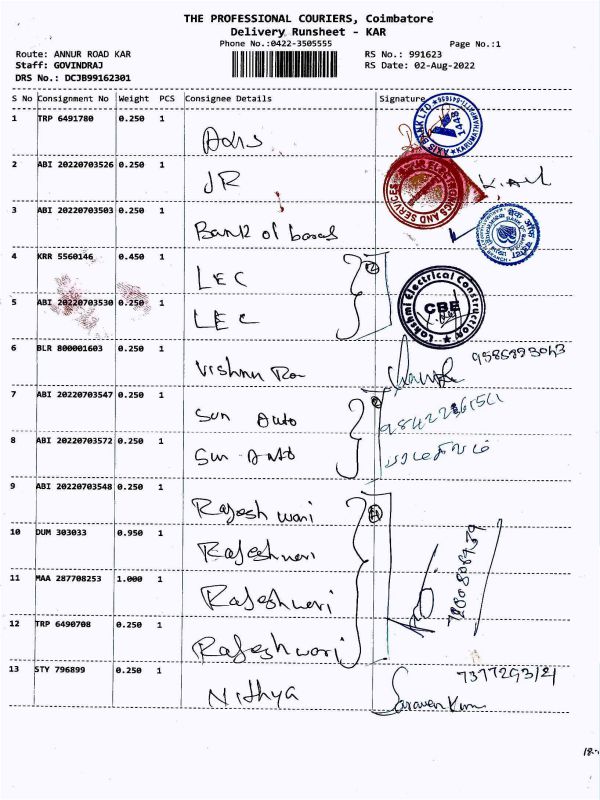 THE PROFESSIONAL COURIERS, Coimbatore
Delivery Runsheet - KAR
Phone No.:0422-3505555 Page No.:1
Route: ANNUR ROAD KAR RS No.: 991623
Staff: GOVINDRAJ RS Date: 02-Aug-2022
DRS No.: DCJB99162301
S No Consignment No Weight PCS Consignee Details Signature
1 TRP 6491780 0.250 1
AXIS BANK LTD
1448
2 ABI 20220703526 0.250 1 JR
ELECTRONICS AND SERVICES
3 ABI 20220703503 0.250 1 Bank of
4 KRR 5560146 0.450 1 LEC
5 ABI 20220703530 0.250 1 LEC
Lakshmi Electrical Construction
CBE
6 BLR 800001603 0.250 1 Vishnu
7 ABI 20220703547 0.250 1 Sun Auto
8 ABI 20220703572 0.250 1 Sun Auto
9 ABI 20220703548 0.250 1 Rajeshwari
10 DUM 303033 0.950 1 Rajeshwari
11 MAA 287708253 1.000 1 Rajeshwari
12 TRP 6490708 0.250 1 Rajeshwari
13 STY 796899 0.250 1 Nithya